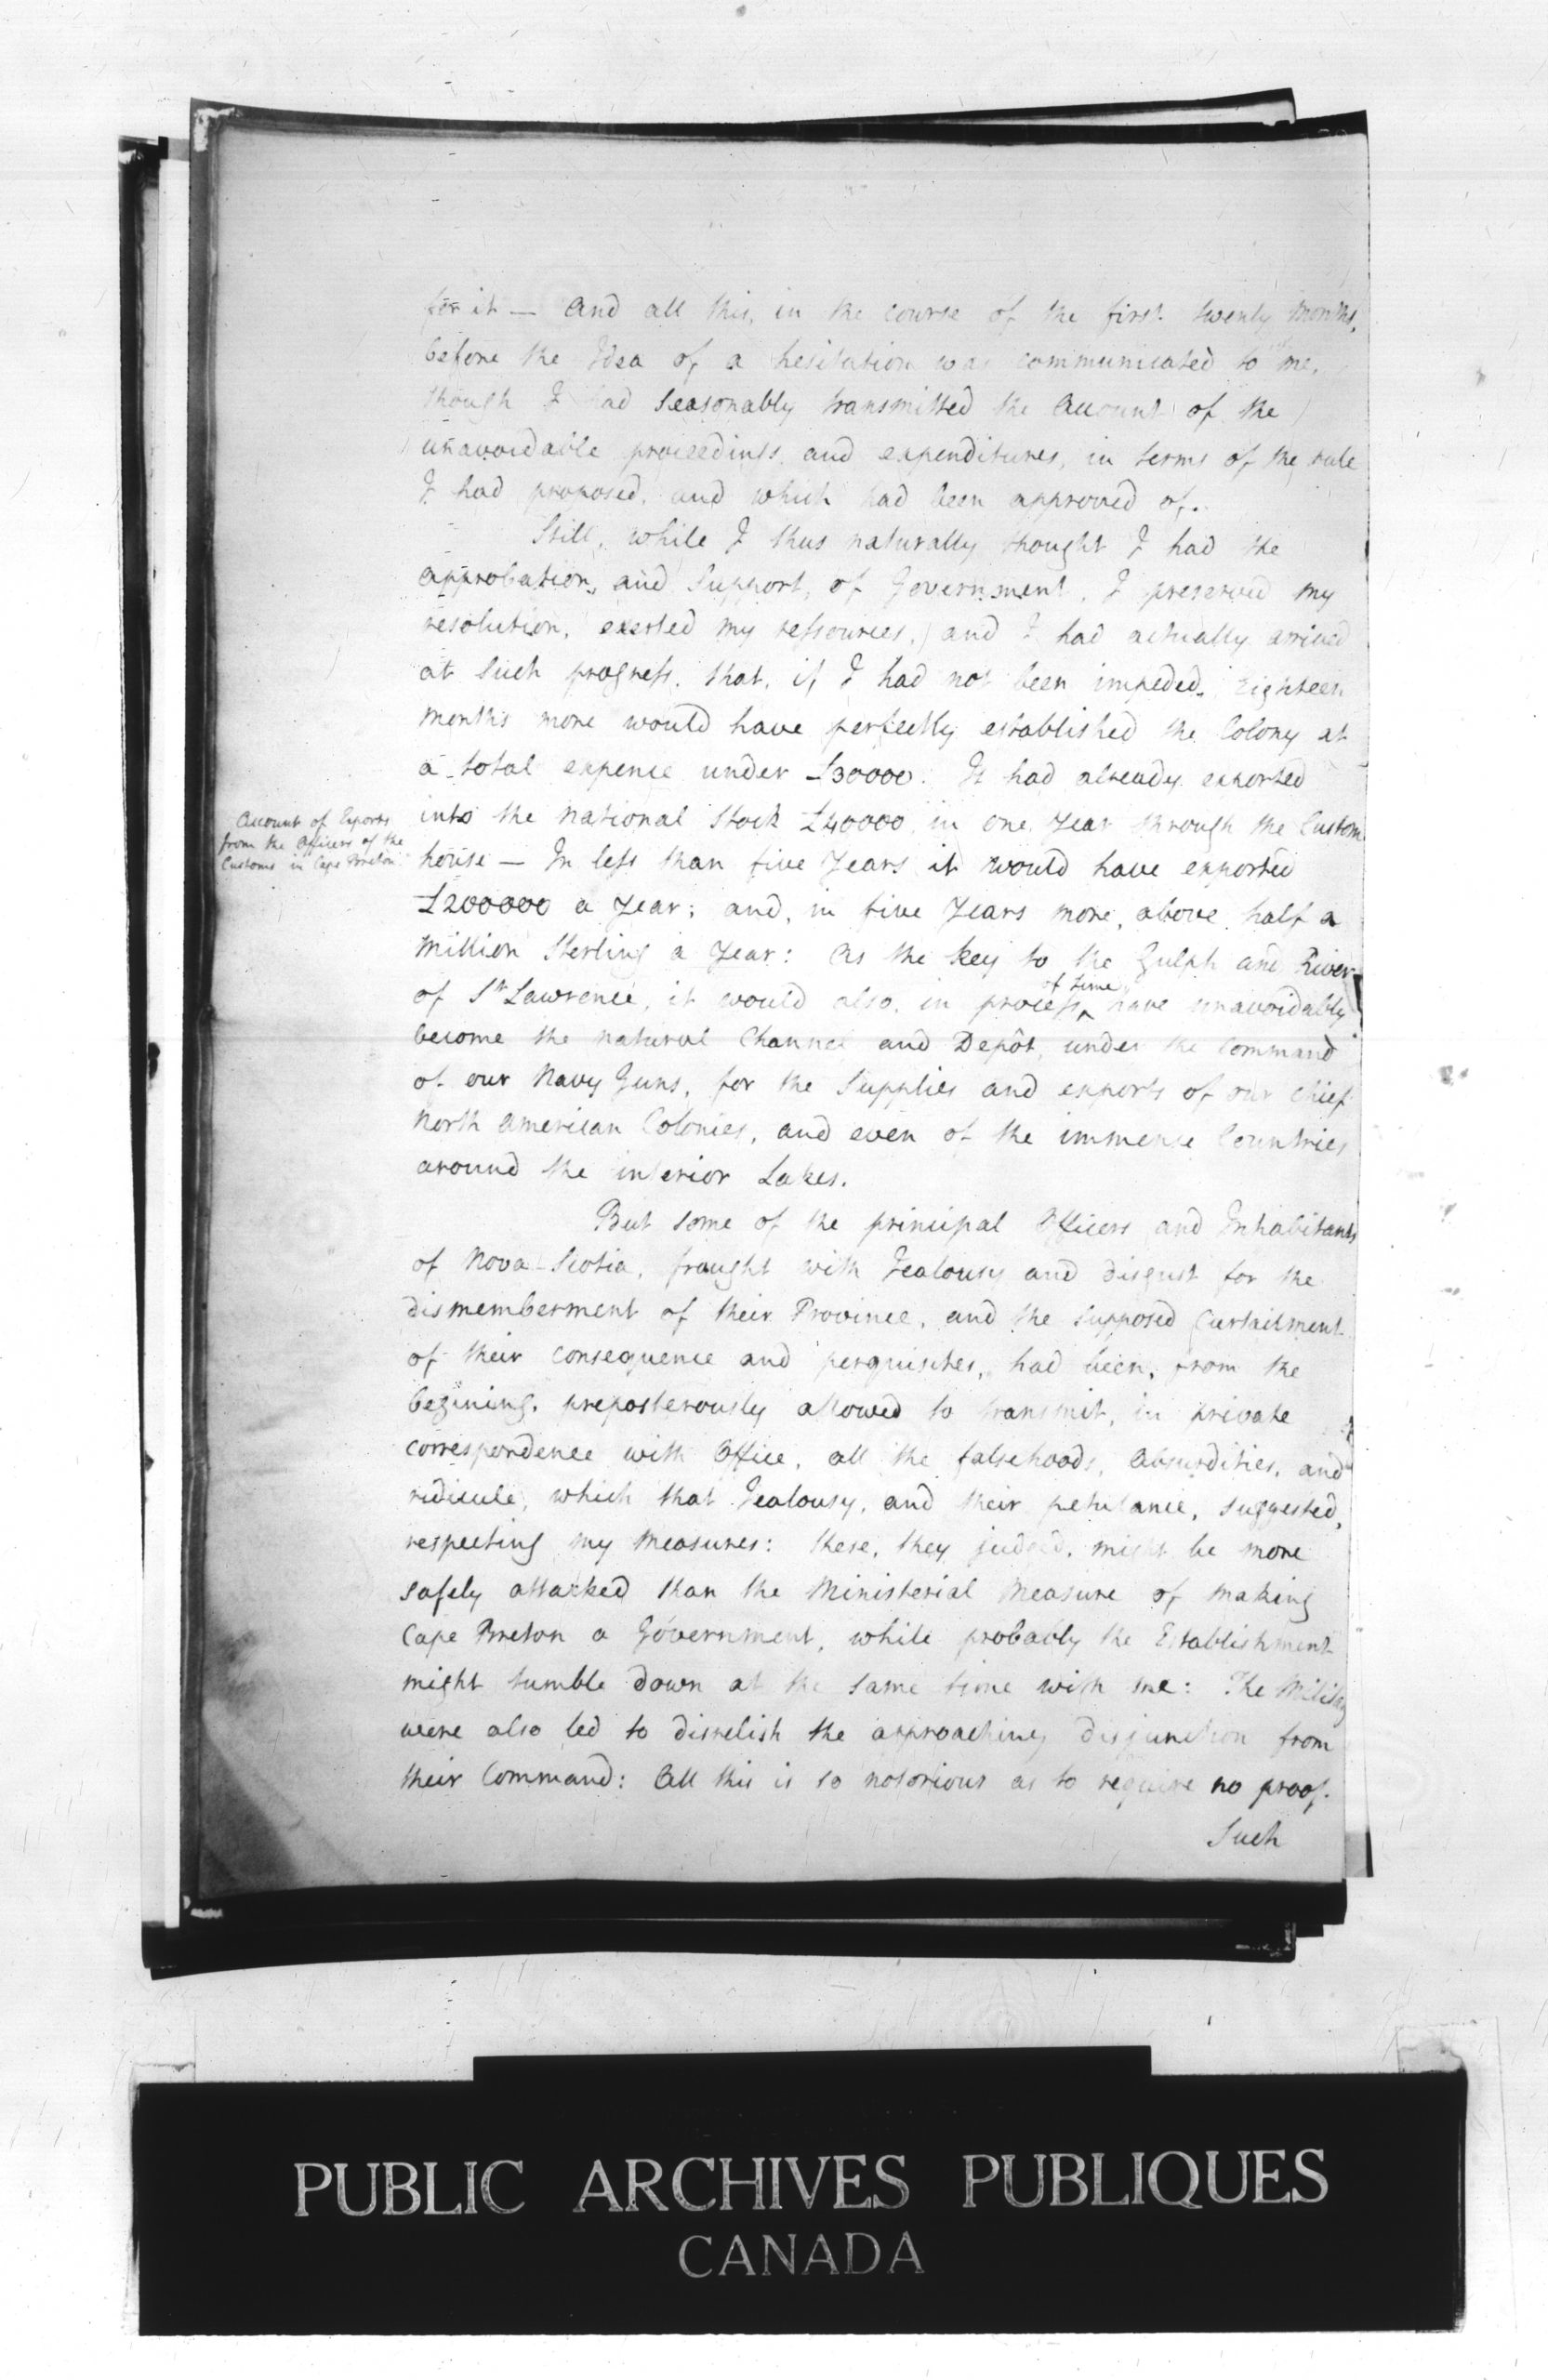 for it — And all this, in the course of the first twenty Months,
before the Idea of a hesitation was communicated to me,
though I had seasonably transmitted the Account of the
unavoidable proceedings and expenditures, in terms of the rule
I had proposed, and which had been approved of.
Still, while I thus naturally thought I had the
approbation, and Support, of Government, I preserved my
resolution, exerted my ressources, and I had actually arrived
at such progress, that, if I had not been impeded, Eighteen
Months more would have perfectly established the Colony at
a total expence under £30000. It had already exported
Account of Exports
from the Officers of the
Customs in Cape Breton
into the National Stock £40000 in one Year through the Custom
house — In less than five Years it would have exported
£200000 a Year; and, in five Years more, above half a
Million Sterling a Year: As the key to the Gulph and River
of St Lawrence, it would also, in process of time, have unavoidably
become the natural Channel and Depôt, under the Command
of our Navy Guns, for the Supplies and exports of our chief
North American Colonies, and even of the immense Countries
around the interior Lakes.
But some of the principal Officers and Inhabitants
of Nova-Scotia, fraught with Jealousy and disgust for the
dismemberment of their Province, and the supposed Curtailment
of their consequence and perquisites, had been, from the
begining, preposterously allowed to transmit, in private
correspondence with Office, all the falsehoods, Absurdities, and
ridicule, which that Jealousy, and their petulance, suggested,
respecting my Measures: these, they judged, might be more
safely attacked than the Ministerial Measure of making
Cape Breton a Government, while probably the Establishment
might tumble down at the same time with me: The Military
were also led to disrelish the approaching disjunction from
their Command: All this is so notorious as to require no proof.
Such
PUBLIC ARCHIVES PUBLIQUES
CANADA